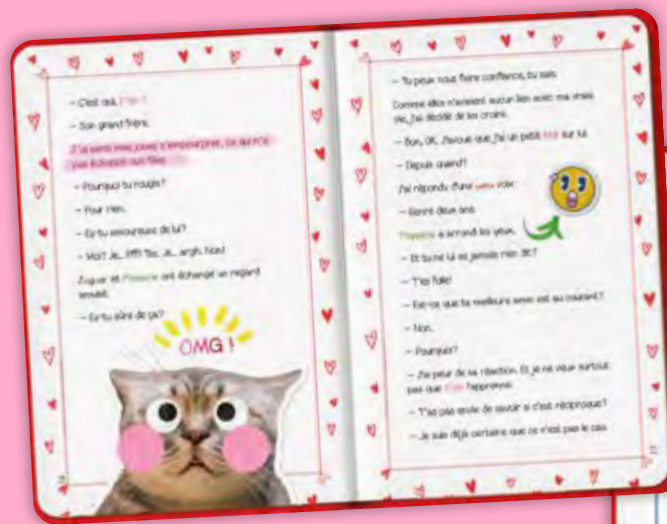 – C'est qui,
– Son grand frère.
J'ai senti mes joues s'empourprer, ce qui n'a
pas échappé aux filles.
– Pourquoi tu rougis?
– Pour rien.
– Es-tu amoureuse de lui?
– Moi? Je... Pfft! Toi. Je... argh. Non!
Jaguar et ont échangé un regard
amusé.
– Es-tu sûre de ça?
OMG !
– Tu peux nous faire confiance, tu sais.
Comme elles n'avaient aucun lien avec ma vraie
vie, j'ai décidé de les croire.
– Bon, OK. J'avoue que j'ai un petit sur lui.
– Depuis quand?
J'ai répondu d'une petite voix:
– Genre deux ans.
a arrondi les yeux.
– Et tu ne lui as jamais rien dit?
– T'es folle!
– Est-ce que ta meilleure amie est au courant?
– Non.
– Pourquoi?
– J'ai peur de sa réaction. Et je ne veux surtout
pas que l'apprenne.
– T'as pas envie de savoir si c'est réciproque?
– Je suis déjà certaine que ce n'est pas le cas.